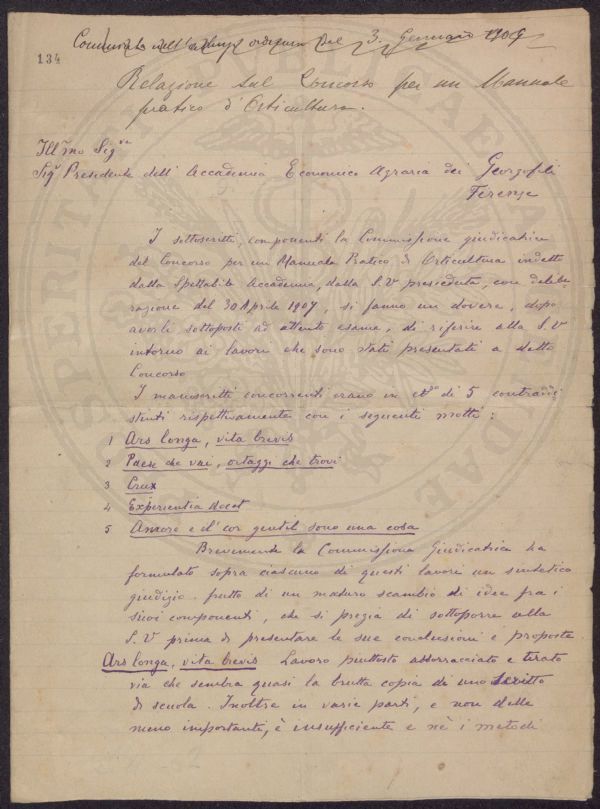 Comunicata nell' adunanza ordinaria del 3. Gennaio 1909
134
Relazione sul Concorso per un Manuale
pratico d'Orticultura.
Ill.mo Sig.re
Sig.r Presidente dell' Accademia Economico Agraria dei Georgofili
Firenze
I sottoscritti, componenti la Commissione giudicatrice
del Concorso per un Manuale Pratico di Orticultura indetto
dalla Spettabile Accademia, dalla S.V presieduta, con delibe
razione del 30 Aprile 1907, si fanno un dovere, dopo
averli sottoposti ad attento esame, di riferire alla S.V
intorno ai lavori che sono stati presentati a detto
Concorso
I manoscritti concorrenti erano in di 5 contraddi
stinti rispettivamente con i seguenti motti:
1 Ars longa, vita brevis
2 Paese che vai, ortaggi che trovi
3 Crux
4 Experientia docet
5 Amore e 'l cor gentil sono una cosa
Brevemente la Commissione Giudicatrice ha
formulato sopra ciascuno di questi lavori un sintetico
giudizio frutto di un maturo scambio di idee fra i
suoi componenti, che si pregia di sottoporre alla
S.V prima di presentare le sue conclusioni e proposte
Ars longa, vita brevis Lavoro piuttosto abborracciato e tirato
via che sembra quasi la brutta copia di uno scritto
di scuola. Inoltre in varie parti, e non delle
meno importanti, è insufficiente e nè i metodi